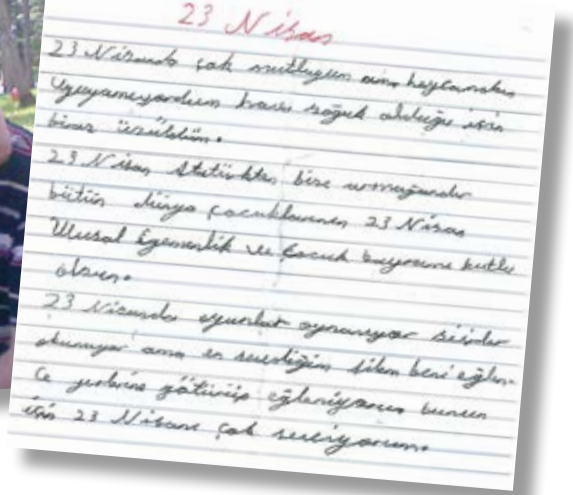 23 Nisan
23 Nisanda çok mutluyum ama heycandan
Uyuyamıyordum hava soğuk olduğu için
biraz üzüldüm.
23 Nisan Atatürkten bize armağandır
bütün dünya çocuklarının 23 Nisan
Ulusal Egemenlik ve Çocuk bayramı kutlu
olsun.
23 Nisanda oyunlar oynanıyor şiirler
okunuyor ama en sevdiğim ailem beni eğlen-
ce yerlerine götürüp eğleniyorum bunun
için 23 Nisanı çok seviyorum.